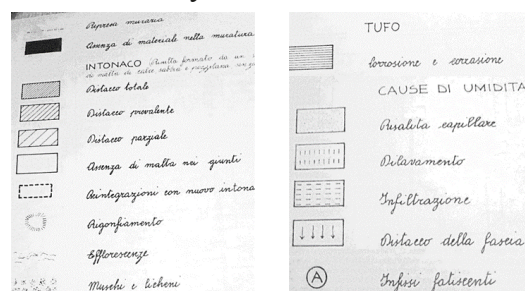 Ripresa muraria
Assenza di materiale nella muratura
INTONACO
di malta di calce
Distacco totale
Distacco prevalente
Distacco parziale
Assenza di malta nei giunti
Reintegrazioni con nuovo intona
Rigonfiamento
Efflorescenze
Muschi e licheni
TUFO
Corrosione e
CAUSE DI UMIDITA
Risalita capillare
Dilavamento
Infiltrazione
Distacco della fascia
A Infissi fatiscenti